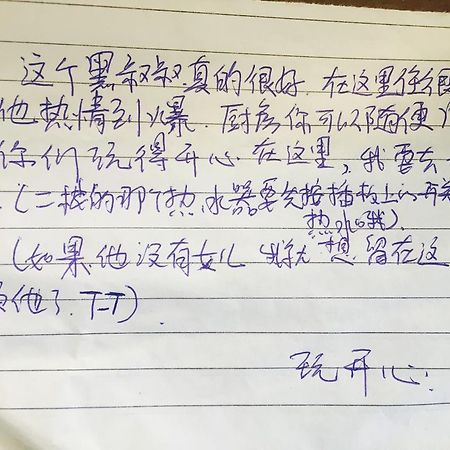 这个黑叔叔真的很好.在这里你很
他热情到火爆.厨房你可以随便
你们玩得开心在这里,我要去
(二楼的那个热水器要先按插板上的再关
热水哦).
(如果他没有女儿 我就想留在这
他了.T-T)
玩开心.